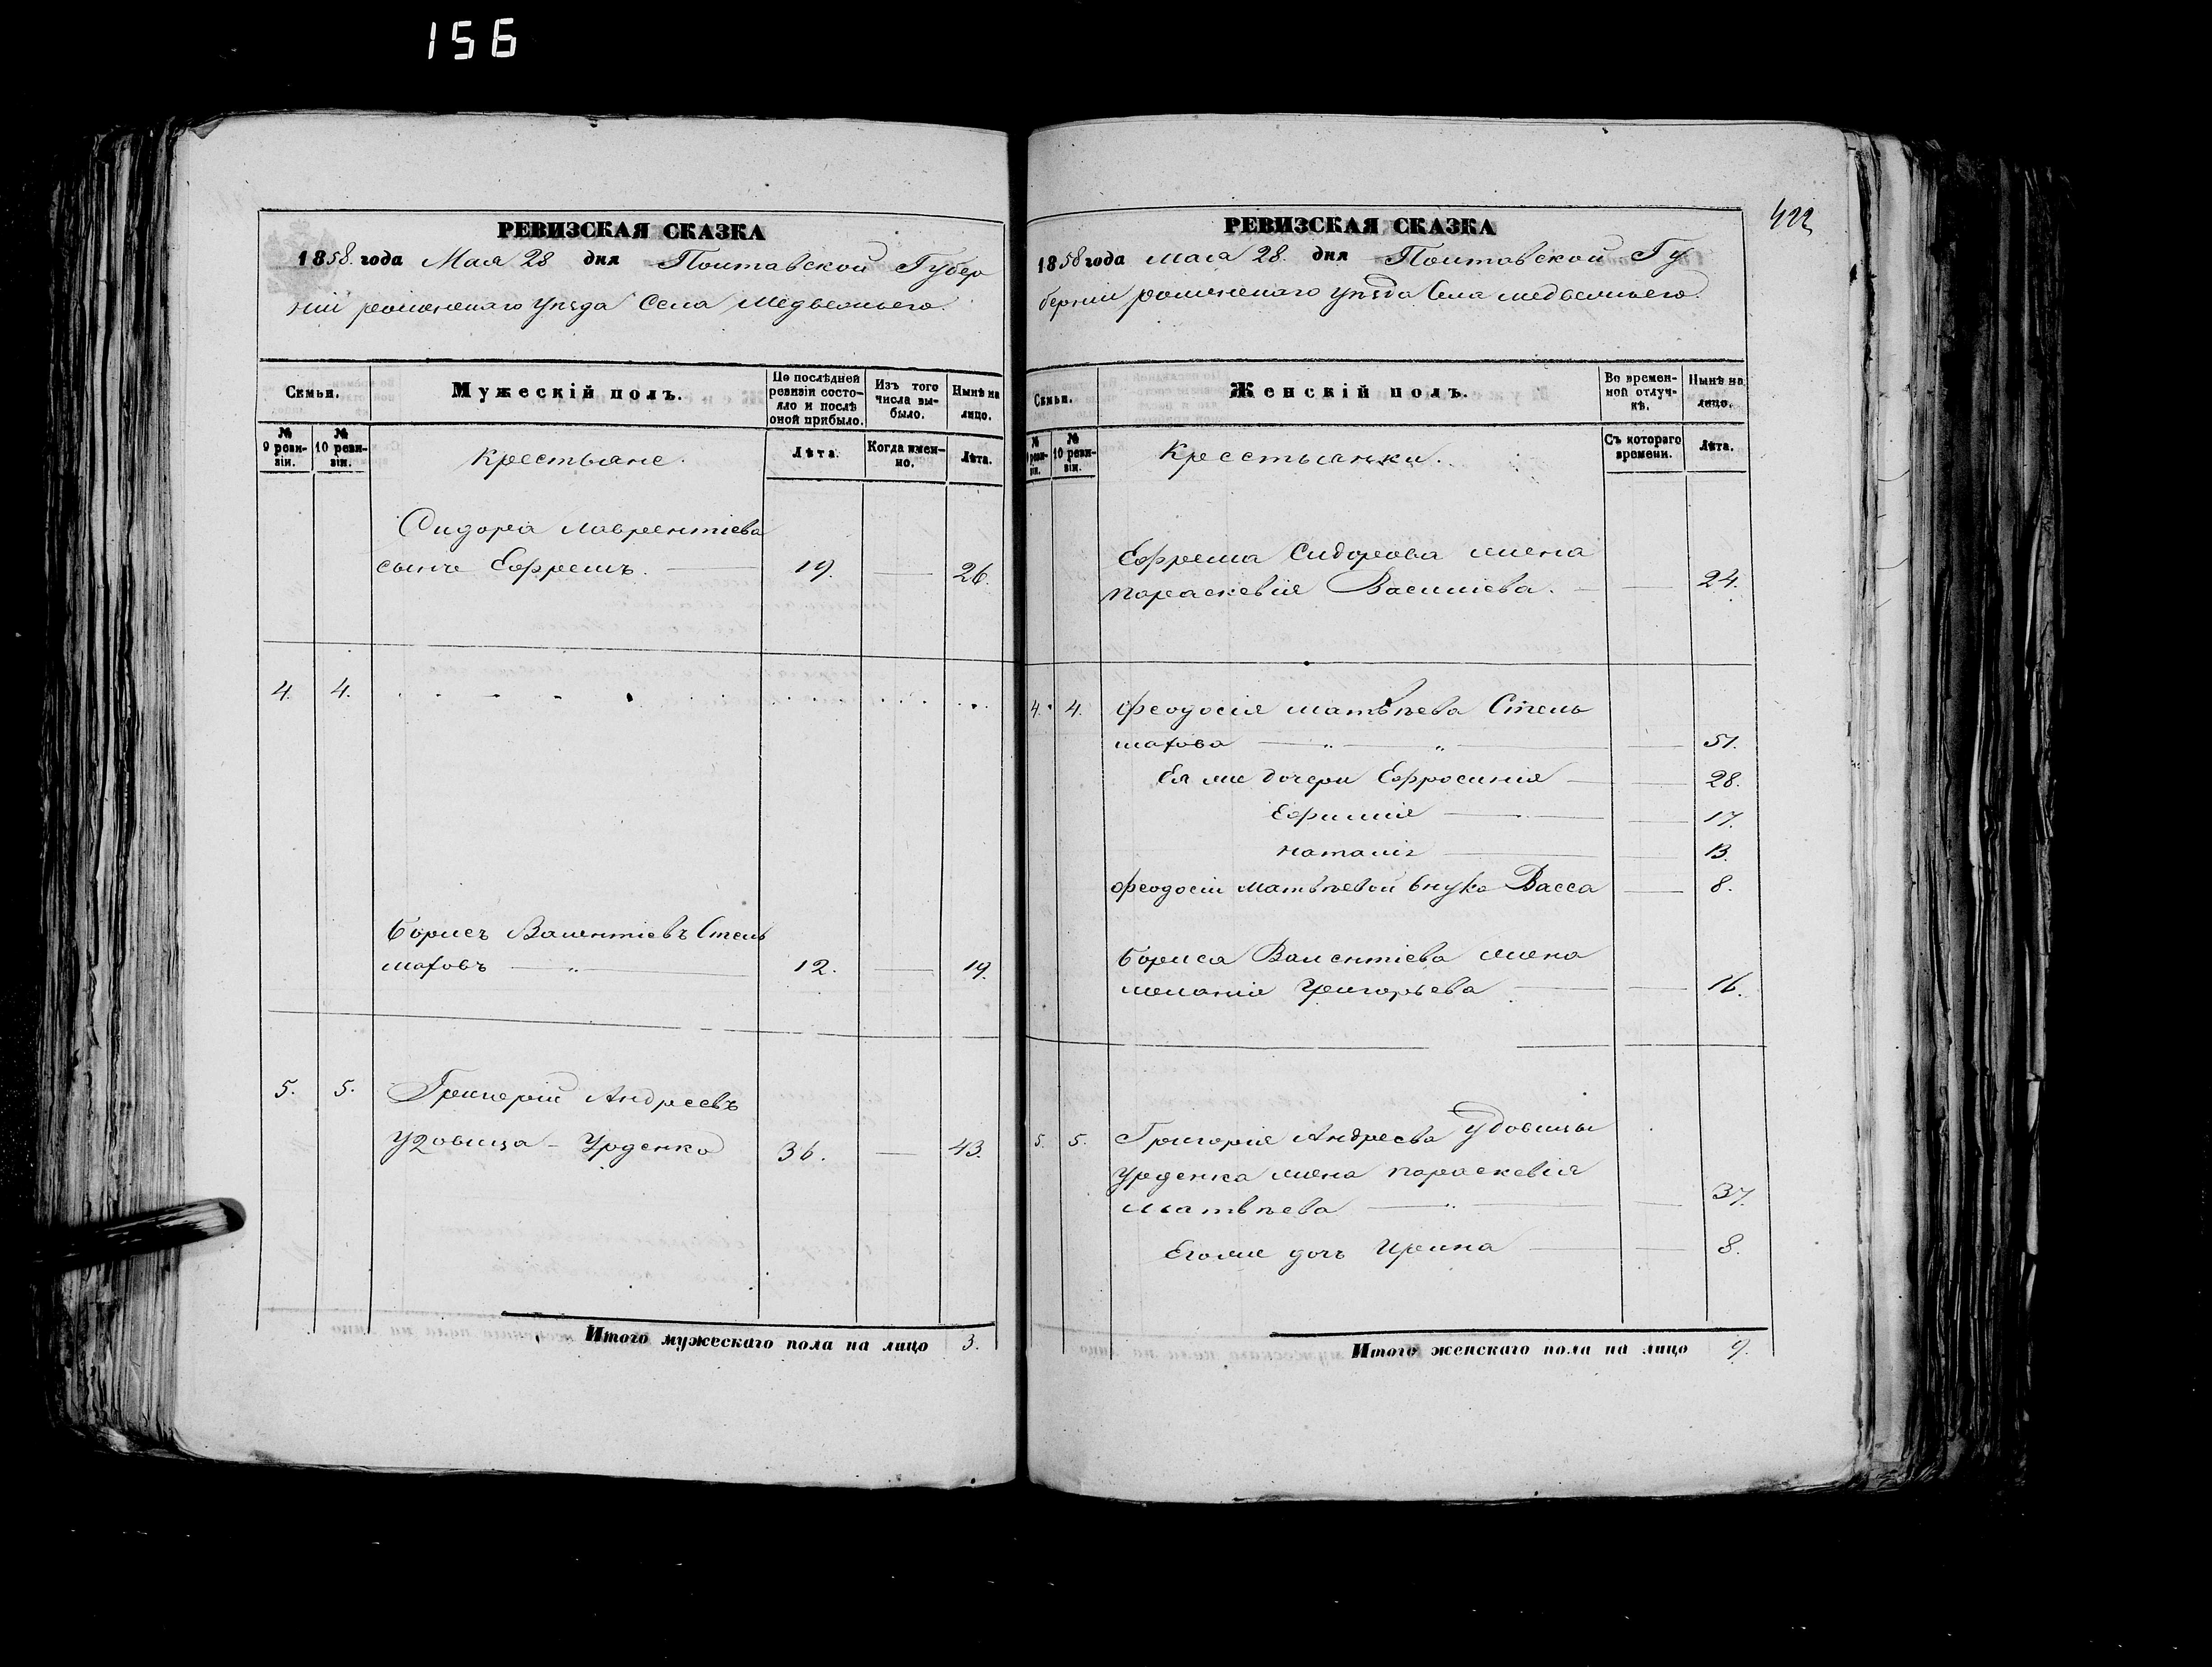 156
РЕВИЗСКАЯ СКАЗКА
1858. года Мая 28 дня Полтавской Губер
ніи роменскаго уѣзда Села Медвежьего.
Семьи.
Мужескій полъ.
По послѣдней ревизіи состояло и послѣ оной прибыло.
Изъ того числа выбыло.
Нынѣ на лицо.
№ 9 ревизіи.
№ 10 ревизіи.
Крестьяне.
Лѣта.
Когда именно.
Лѣта.
Сидора лаврентіева
сынъ Ефремъ. 19. 26.
4. 4.
Борисъ Валентіевъ Стель
маховъ 12. 19.
5. 5. Григорій Андреевъ
Удовица - Урденко 36. 43.
Итого мужескаго пола на лицо 3.
422
РЕВИЗСКАЯ СКАЗКА
1858 года мая 28. дня Полтавской Гу
берніи роменскаго уѣзда Села медвежьего.
Семьи.
Женскій полъ.
Во временной отлучкѣ.
Нынѣ на лицо.
№ 9 ревизіи.
№ 10 ревизіи.
Крестьянки.
Съ котораго времени.
Лѣта.
Ефрема Сидорова жена
параскевія Василіева. 24.
4. 4. Феодосія матвѣева Стель
махова 51.
Ея же дочери Ефросинія 28.
Ефимія 17.
наталія 13.
Феодосіи матвѣевой внука Васса 8.
Бориса Валентіева жена
меланія Григорьева 16.
5. 5. Григорія Андреева удовицы
урденка жена параскевія
матвѣева 37.
Егоже дочь Ирина 8.
Итого женскаго пола на лицо 9.